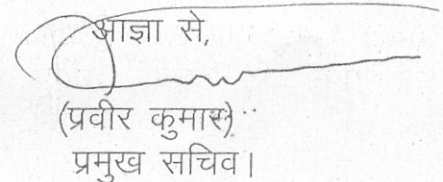 आज्ञा से,
(प्रवीर कुमार)
प्रमुख सचिव।